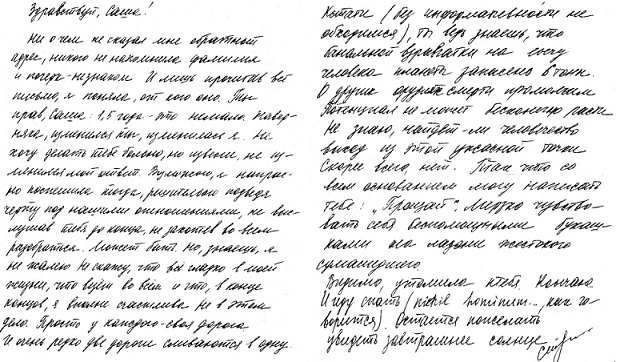 Здравствуй, Саша!
Ни о чем не сказал мне обратный
адрес, никого не напомнила фамилия
и почерк-незнаком. И лишь прочитав всё
письмо, я поняла, от кого оно. Ты
прав, Саша: 1,5 года - это немало. Навер-
няка, изменился ты, изменилась я. Не
хочу делать тебе больно, но извини, не из-
менился мой ответ. Возможно, я напрас-
но поспешила тогда, решительно подведя
черту под нашими отношениями, не выс-
лушав тебя до конца, не захотев во всем
разобраться. Может быть. Но, знаешь, я
не жалею. Не скажу, что всё гладко в моей
жизни, что везет во всем и что, в конце
концов, я вполне счастлива. Не в этом
дело. Просто у каждого-своя дорога.
И очень редко две дороги сливаются в одну.
Кстати (без информативности не
обходимся), ты ведь знаешь, что
банальной взрывчатки на душу
человека планеты запасено 6 тонн.
О других орудиях смерти промолчим.
Потенциал не может бесконечно расти.
Не знаю, найдёт-ли человечество
выход из этой ужасной точки
Скорее всего, нет. Так что со
всем основанием могу написать
тебе: „Прощай". Мерзко чувство-
вать себя беспомощными букаш-
ками под ладони жестокого
сумасшедшего.
Видимо, утомила я тебя. Кончаю.
Иду спать ( как го-
ворится). Остается пожелать
увидеть завтрашнее солнце